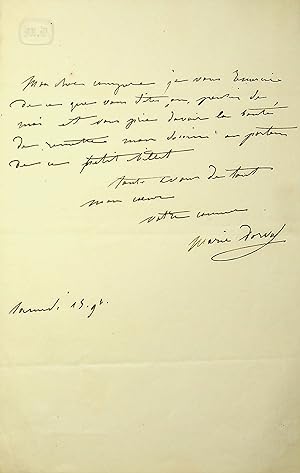 M.D.
Mon cher compère je vous remercie
de ce que vous dites, en partie de
moi et vous prie d'avoir la bonté
de remettre mon dessin au porteur
de ce petit billet
toute à vous de tout
mon cœur
votre commère
Marie Dorval
Samedi 15 9bre